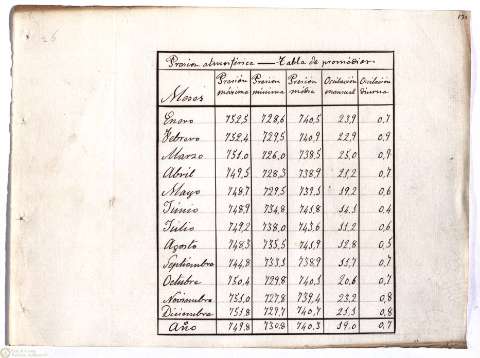 Presión atmosférica — Tabla de promedios
Meses Presión máxima Presión mínima Presión média Oscilación mensual Oscilación diurna
Enero 752,5 728,6 740,5 23,9 0,7
Febrero 752,4 729,5 740,9 22,9 0,9
Marzo 751,0 726,0 738,5 25,0 0,9
Abril 749,5 728,3 738,9 21,2 0,7
Mayo 748,7 729,5 739,1 19,2 0,6
Junio 748,9 734,8 741,8 14,1 0,4
Julio 749,2 738,0 743,6 11,2 0,6
Agosto 748,3 735,5 741,9 12,8 0,5
Septiembre 744,8 733,1 738,9 11,7 0,7
Octubre 750,4 729,8 740,1 20,6 0,7
Noviembre 751,0 727,8 739,4 23,2 0,8
Diciembre 751,8 729,7 740,7 21,1 0,8
Año 749,8 730,8 740,3 19,0 0,7